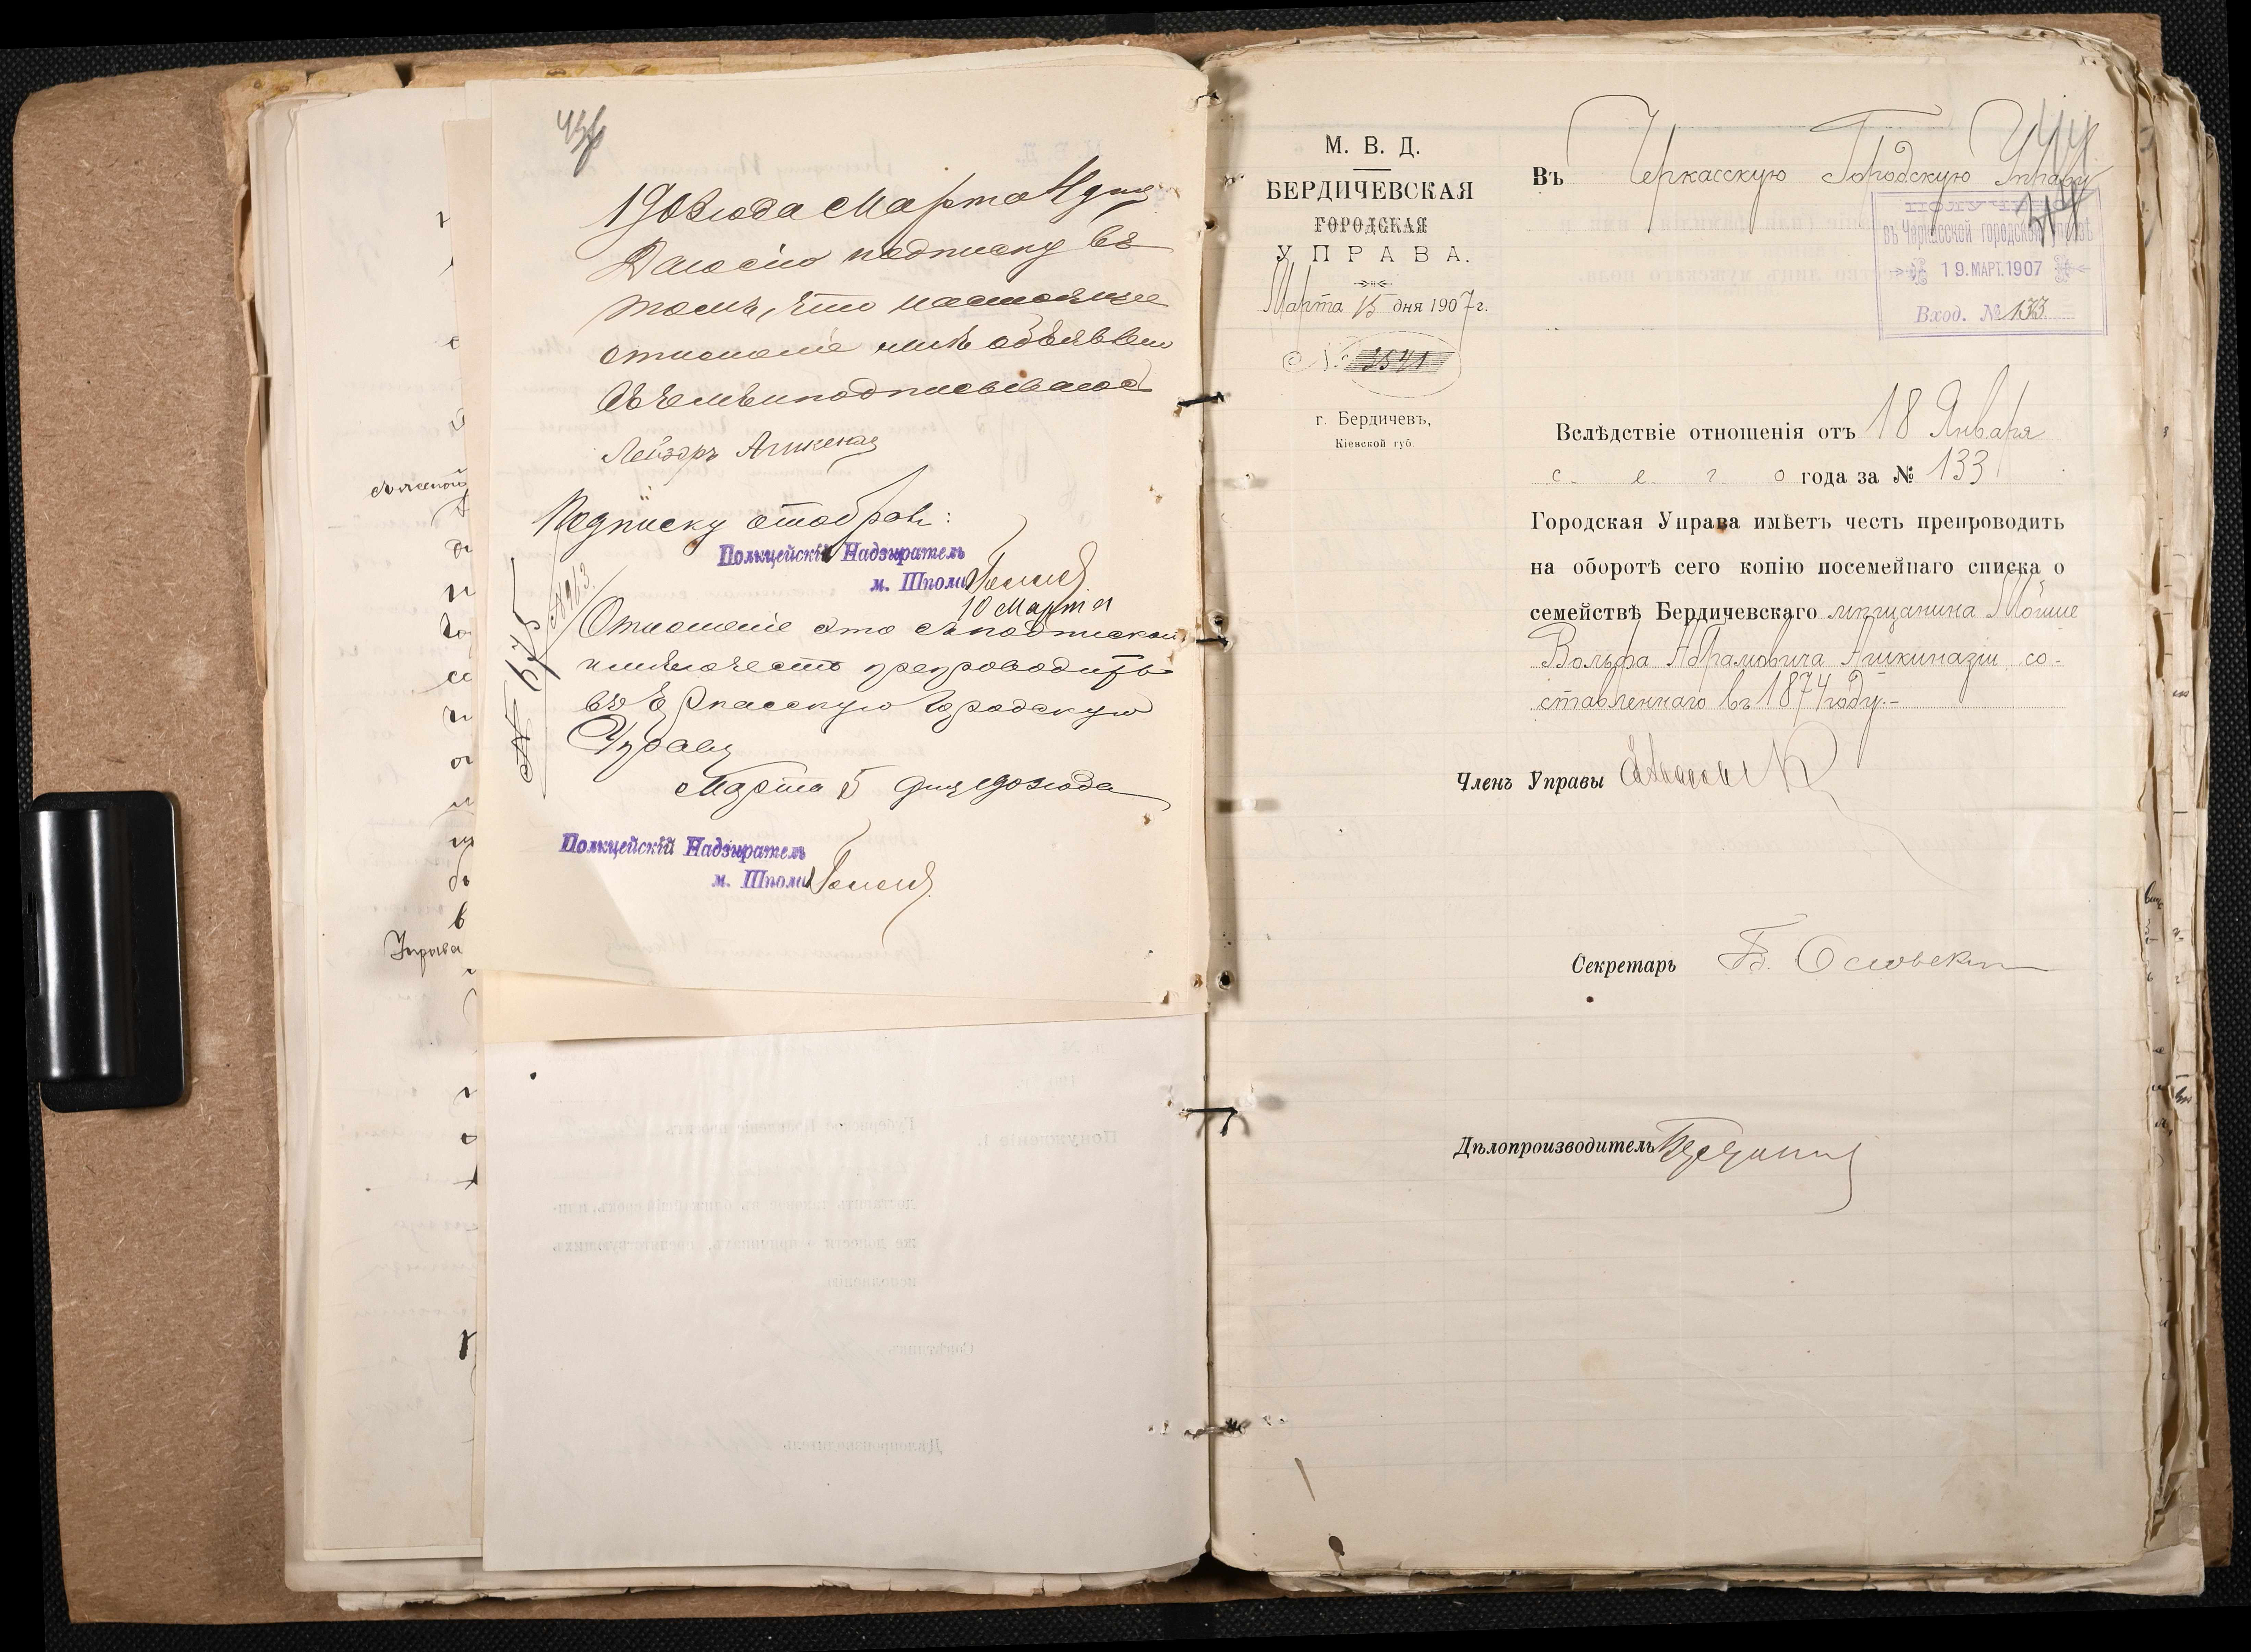 1908 года Марта 4 дня
Даю сію подписку въ
томъ, что настоящее
отношеніе мнѣ объявлено
въ чемъ и подписываюсь
Лейзоръ Ашкенази
Подписку отобралъ:
Полицейскій Надзиратель
м. Шполы
№ 913
10 Марта
Отношеніе это съ подпискою
имѣю честь препроводить
въ Черкасскую Городскую
Управу
Марта 5 дня 1908 года
Полицейскій Надзиратель
м. Шполы
Управа
М. В. Д.
БЕРДИЧЕВСКАЯ
ГОРОДСКАЯ
УПРАВА.
Марта 15 дня 1907 г.
№ 3541
г. Бердичевъ,
Кіевской губ.
44
Въ Черкасскую Городскую Управу
ПОЛУЧЕНО
въ Черкасской городской управѣ
19. МАРТ. 1907
Вход. № 133
Вслѣдствіе отношенія отъ 18 Января
с е г о года за № 133
Городская Управа имѣетъ честь препроводить
на оборотѣ сего копію посемейнаго списка о
семействѣ Бердичевскаго мѣщанина Мойше
Вольфа Абрамовича Ашкинази, со-
ставленнаго въ 1874 году.-
Членъ Управы
Секретарь
Дѣлопроизводитель